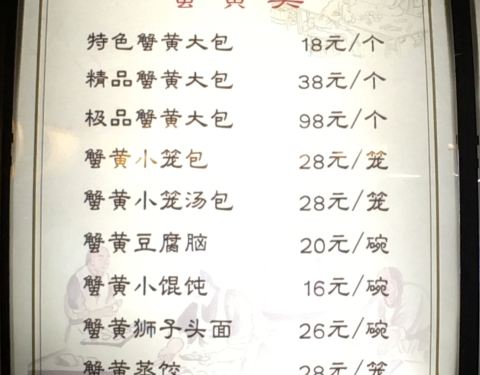 蟹黄类
特色蟹黄大包 18元/个
精品蟹黄大包 38元/个
极品蟹黄大包 98元/个
蟹黄小笼包 28元/笼
蟹黄小笼汤包 28元/笼
蟹黄豆腐脑 20元/碗
蟹黄小馄饨 16元/碗
蟹黄狮子头面 26元/碗
蟹黄蒸饺 28元/笼